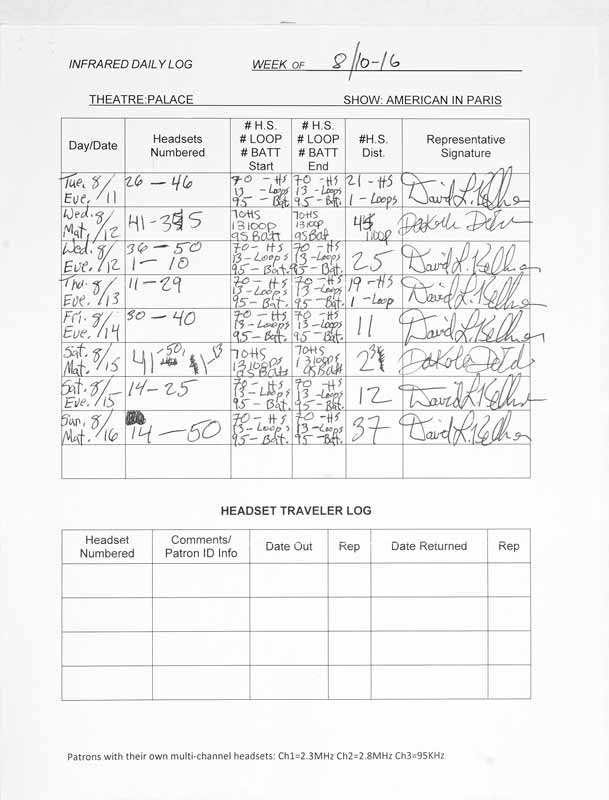 INFRARED DAILY LOG WEEK OF 8/10-16
THEATRE:PALACE SHOW: AMERICAN IN PARIS
Day/Date
Headsets
Numbered
# H.S.
# LOOP
# BATT
Start
# H.S.
# LOOP
# BATT
End
#H.S.
Dist.
Representative
Signature
Tue. 8/
Eve. /11
26 - 46
70 - HS
13 - Loops
95 - Bat.
70 - HS
13 - Loops
95 - Bat.
21 - HS
1 - Loops
David L. Kellner
Wed. 8/
Mat. /12
41 - 5
70HS
13 loop
95 Batt
70HS
13 loop
95 Batt
45
1 loop
Dakota
Wed. 8/
Eve. /12
36 - 50
1 - 10
70 - HS
13 - Loops
95 - Bat.
70 - HS
13 - Loops
95 - Bat.
25
David L. Kellner
Thu. 8/
Eve. /13
11 - 29
70 - HS
13 - Loops
95 - Bat.
70 - HS
13 - Loops
95 - Bat.
19 - HS
1 - Loop
David L. Kellner
Fri. 8/
Eve. /14
30 - 40
70 - HS
13 - Loops
95 - Bat.
70 - HS
13 - Loops
95 - Bat.
11
David L. Kellner
Sat. 8/
Mat. /15
41 - 50, 1 - 13
70HS
13 loops
95 Batt
70HS
13 loops
95 Batt
Dakota
Sat. 8/
Eve. /15
14 - 25
70 - HS
13 - Loops
95 - Bat.
70 - HS
13 - Loops
95 - Bat.
12
David L. Kellner
Sun. 8/
Mat. /16
14 - 50
70 - HS
13 - Loops
95 - Bat.
70 - HS
13 - Loops
95 - Bat.
37
David L. Kellner
HEADSET TRAVELER LOG
Headset
Numbered
Comments/
Patron ID Info
Date Out
Rep
Date Returned
Rep
Patrons with their own multi-channel headsets: Ch1=2.3MHz Ch2=2.8MHz Ch3=95KHz